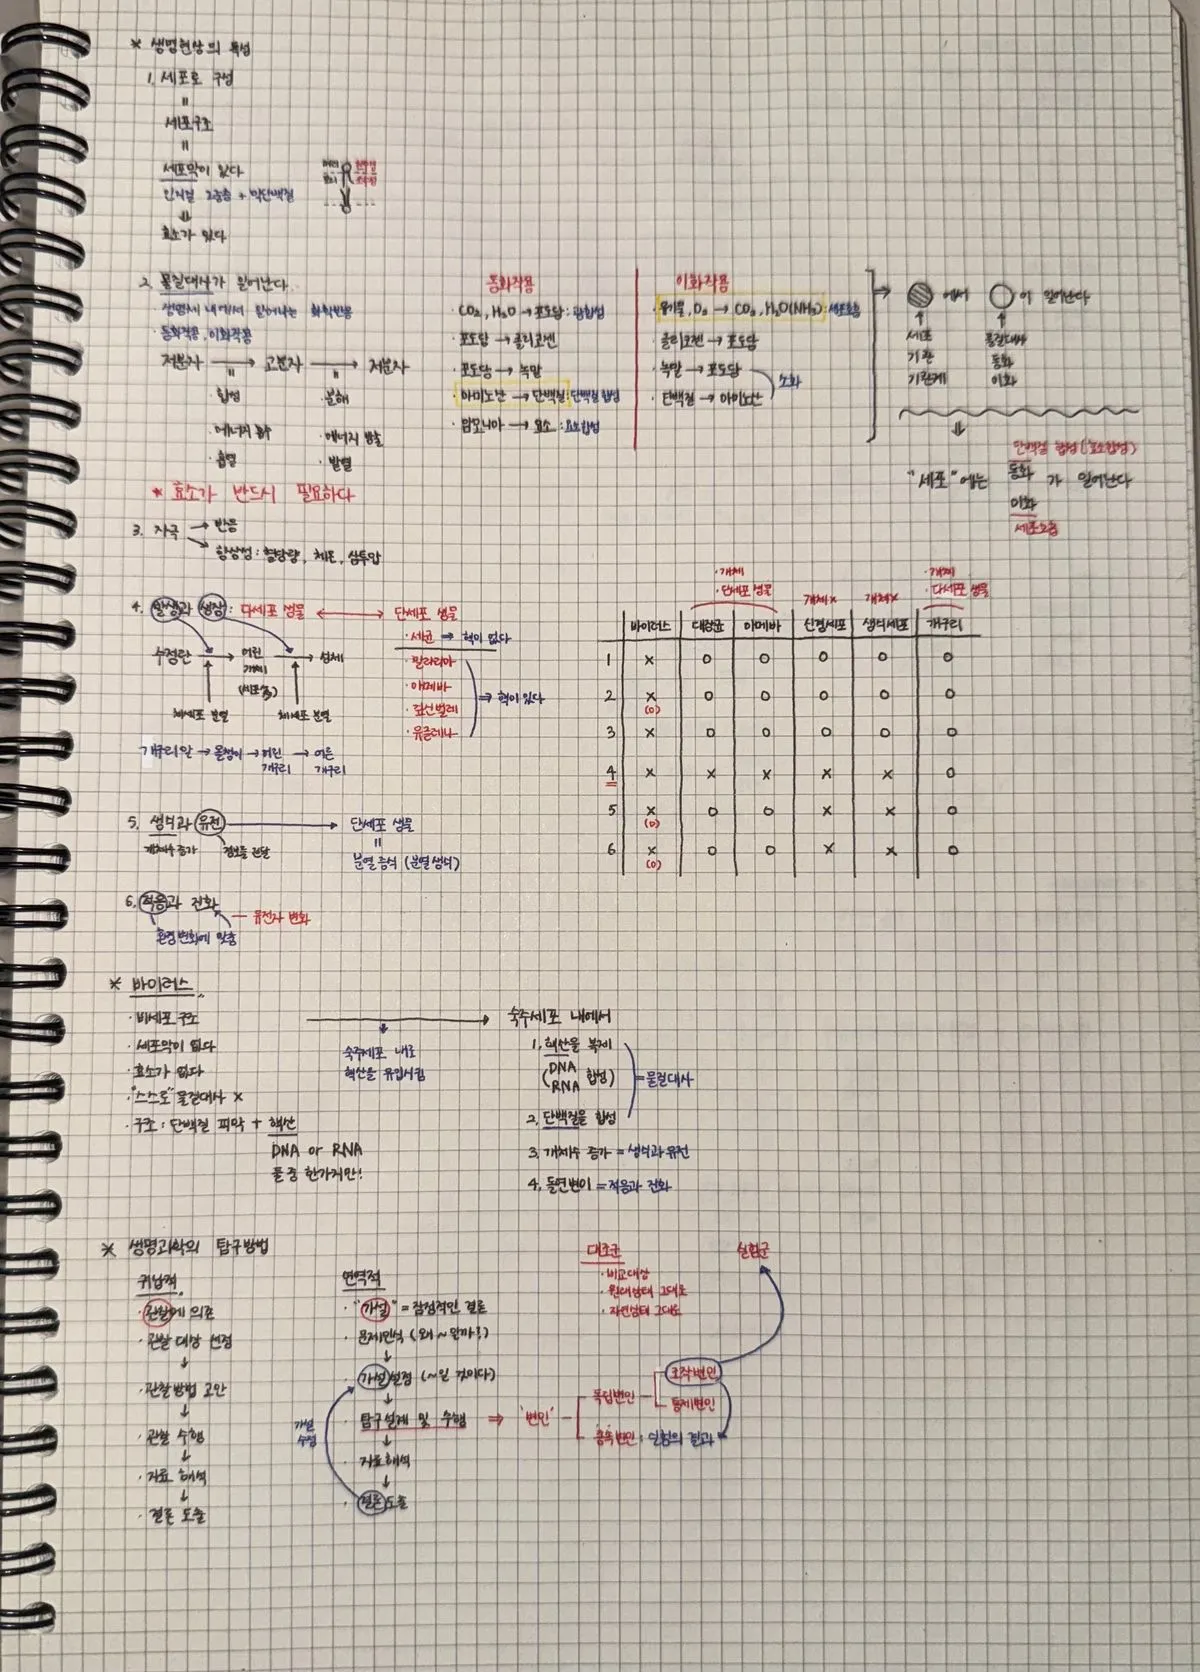 * 생명현상의 특성
1. 세포로 구성
=
세포구조
=
세포막이 있다
인지질 2중층 + 막단백질
⇓
효소가 있다
머리 친수성
꼬리 소수성
2. 물질대사가 일어난다
생명체 내에서 일어나는 화학반응
· 동화작용, 이화작용
저분자 → 고분자 → 저분자
= =
합성 · 분해
· 에너지 흡수 · 에너지 방출
· 흡열 · 발열
* 효소가 반드시 필요하다
동화작용
· CO₂, H₂O → 포도당 : 광합성
· 포도당 → 글리코젠
· 포도당 → 녹말
· 아미노산 → 단백질 : 단백질 합성
· 암모니아 → 요소 : 요소합성
이화작용
· 유기물, O₂ → CO₂, H₂O(NH₃) : 세포호흡
· 글리코젠 → 포도당
· 녹말 → 포도당
· 단백질 → 아미노산
소화
→ 에서 이 일어난다
↑ ↑
세포 물질대사
기관 동화
기관계 이화
⇓
단백질 합성 (효소합성)
"세포"에는 동화 가 일어난다
이화
세포호흡
3. 자극 → 반응
→ 항상성 : 혈당량, 체온, 삼투압
4. 발생과 생장 : 다세포 생물 ↔ 단세포 생물
수정란 → 어린 개체 → 성체
(세포수↑)
체세포 분열 체세포 분열
개구리알 → 올챙이 → 어린 개구리 → 어른 개구리
· 세균 → 핵이 없다
· 말라리아
· 아메바
· 짚신벌레
· 유글레나
⇒ 핵이 있다
· 개체
· 단세포 생물
개체×
개체×
· 개체
· 다세포 생물
바이러스 대장균 아메바 신경세포 생식세포 개구리
1 × O O O O O
2 × (O) O O O O O
3 × O O O O O
4 × × × × × O
5 × (O) O O × × O
6 × (O) O O × × O
5. 생식과 유전 → 단세포 생물
개체수 증가 정보를 전달
=
분열증식 (분열생식)
6. 적응과 진화
유전자 변화
환경변화에 맞춤
* 바이러스
· 비세포 구조
· 세포막이 없다
· 효소가 없다
· "스스로" 물질대사 ×
· 구조 : 단백질 피막 + 핵산
DNA or RNA
둘 중 한가지만!
숙주세포 내로
핵산을 유입시킴
숙주세포 내에서
1. 핵산을 복제
(DNA RNA 합성)
2. 단백질을 합성
= 물질대사
3. 개체수 증가 = 생식과 유전
4. 돌연변이 = 적응과 진화
* 생명과학의 탐구방법
귀납적
· 관찰에 의존
· 관찰 대상 선정
↓
· 관찰방법 고안
↓
· 관찰 수행
↓
· 자료 해석
↓
· 결론 도출
연역적
· "가설" = 잠정적인 결론
· 문제인식 (왜 ~ 일까?)
↓
· 가설설정 (~일 것이다)
↓
· 탐구설계 및 수행 ⇒ '변인'
↓
· 자료해석
↓
· 결론도출
가설
수정
독립변인
조작변인
통제변인
종속변인 : 실험의 결과
대조군
· 비교대상
· 원래상태 그대로
· 자연상태 그대로
실험군